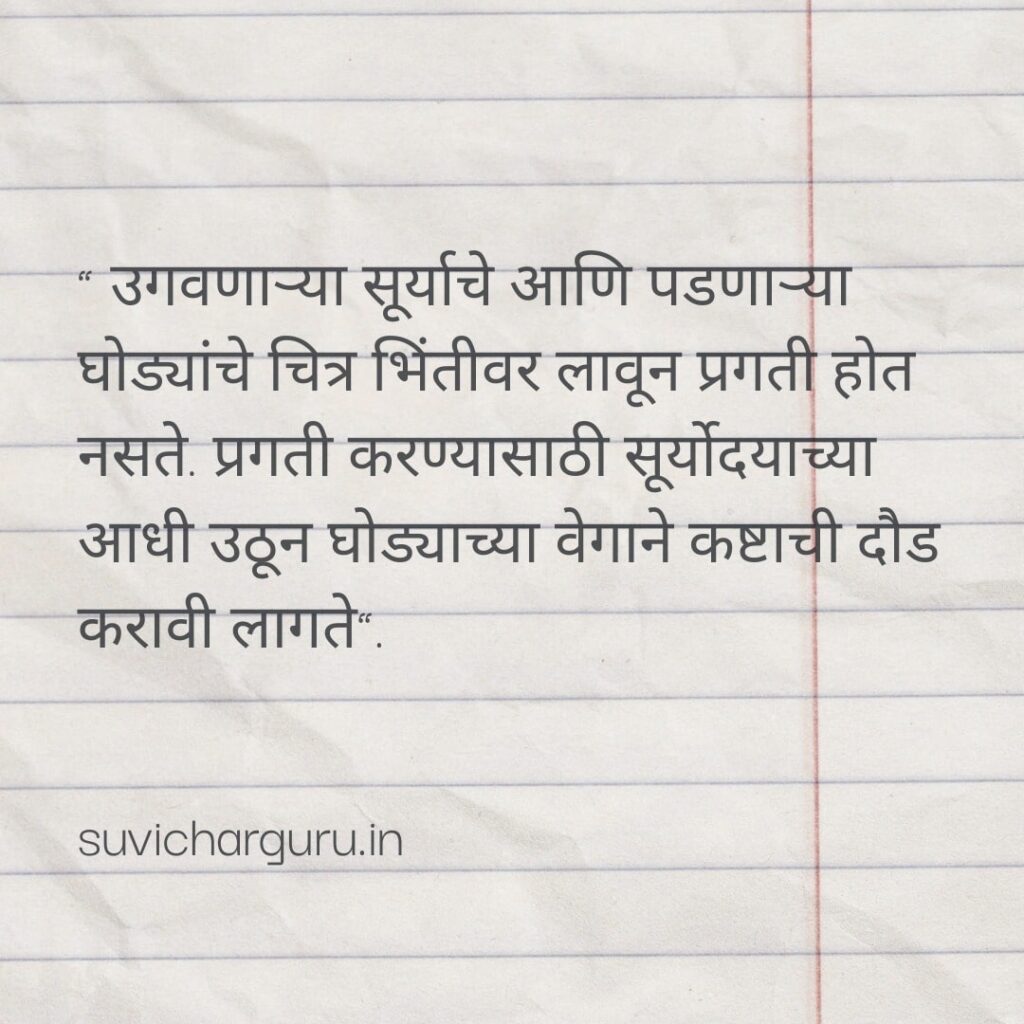 “ उगवणाऱ्या सूर्याचे आणि पडणाऱ्या
घोड्यांचे चित्र भिंतीवर लावून प्रगती होत
नसते. प्रगती करण्यासाठी सूर्योदयाच्या
आधी उठून घोड्याच्या वेगाने कष्टाची दौड
करावी लागते“.
suvicharguru.in